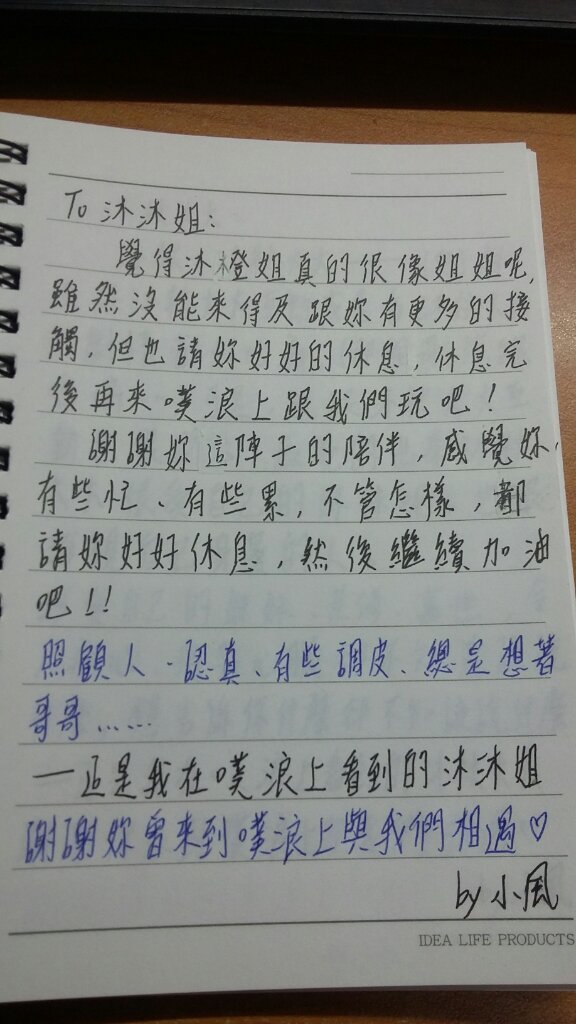 To 沐沐姐:
覺得沐橙姐真的很像姐姐呢,
雖然沒能來得及跟妳有更多的接
觸,但也請妳好好的休息,休息完
後再來噗浪上跟我們玩吧!
謝謝妳這陣子的陪伴,感覺妳
有些忙、有些累,不管怎樣,都
請妳好好休息,然後繼續加油
吧!!
照顧人、認真、有些調皮、總是想著
哥哥……
—這是我在噗浪上看到的沐沐姐
謝謝妳曾來到噗浪上與我們相遇♡
by 小風
IDEA LIFE PRODUCTS